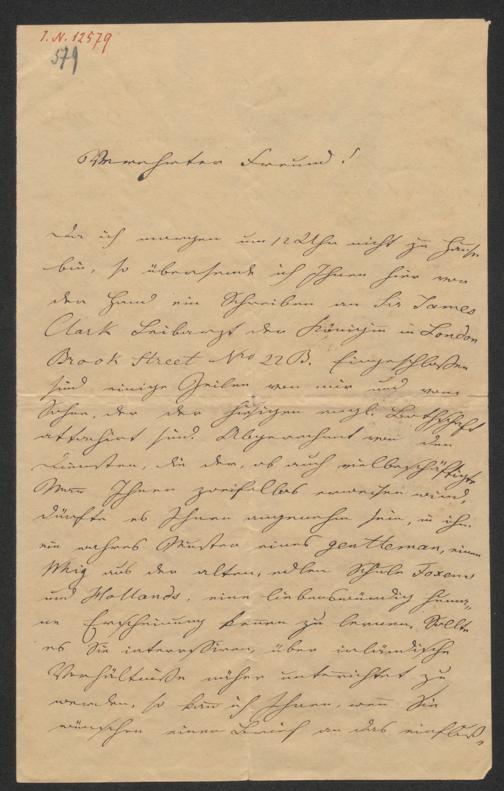 I. N. 12579
579
Verehrter Freund!
Da ich morgen um 12 Uhr nicht zu Hause
bin, so übersende ich Ihnen hier von
der Hand ein Schreiben an Sir James
Clark Leibarzt der Königin in London
Brook Street Nro 22 B. Eingeschlossen
sind einige Zeilen von mir und vom
Sohne, der der hiesigen engl. Bothschaft
attachirt sind. Abgerechnet von den
Diensten, die der, ob auch vielbeschäftigte
Mann Ihnen zweifellos erweisen wird,
dürfte es Ihnen angenehm sein, in ihm
ein wahres Muster eines gentleman, einen
Whig aus der alten, edlen Schule Foxens
und Hollands, eine liebenswürdig huma-
ne Erscheinung kennen zu lernen. Sollte
es Sie interessiren, über inländische
Verhältnisse näher unterrichtet zu
werden, so kann ich Ihnen, wenn Sie
wünschen einen Brief an das